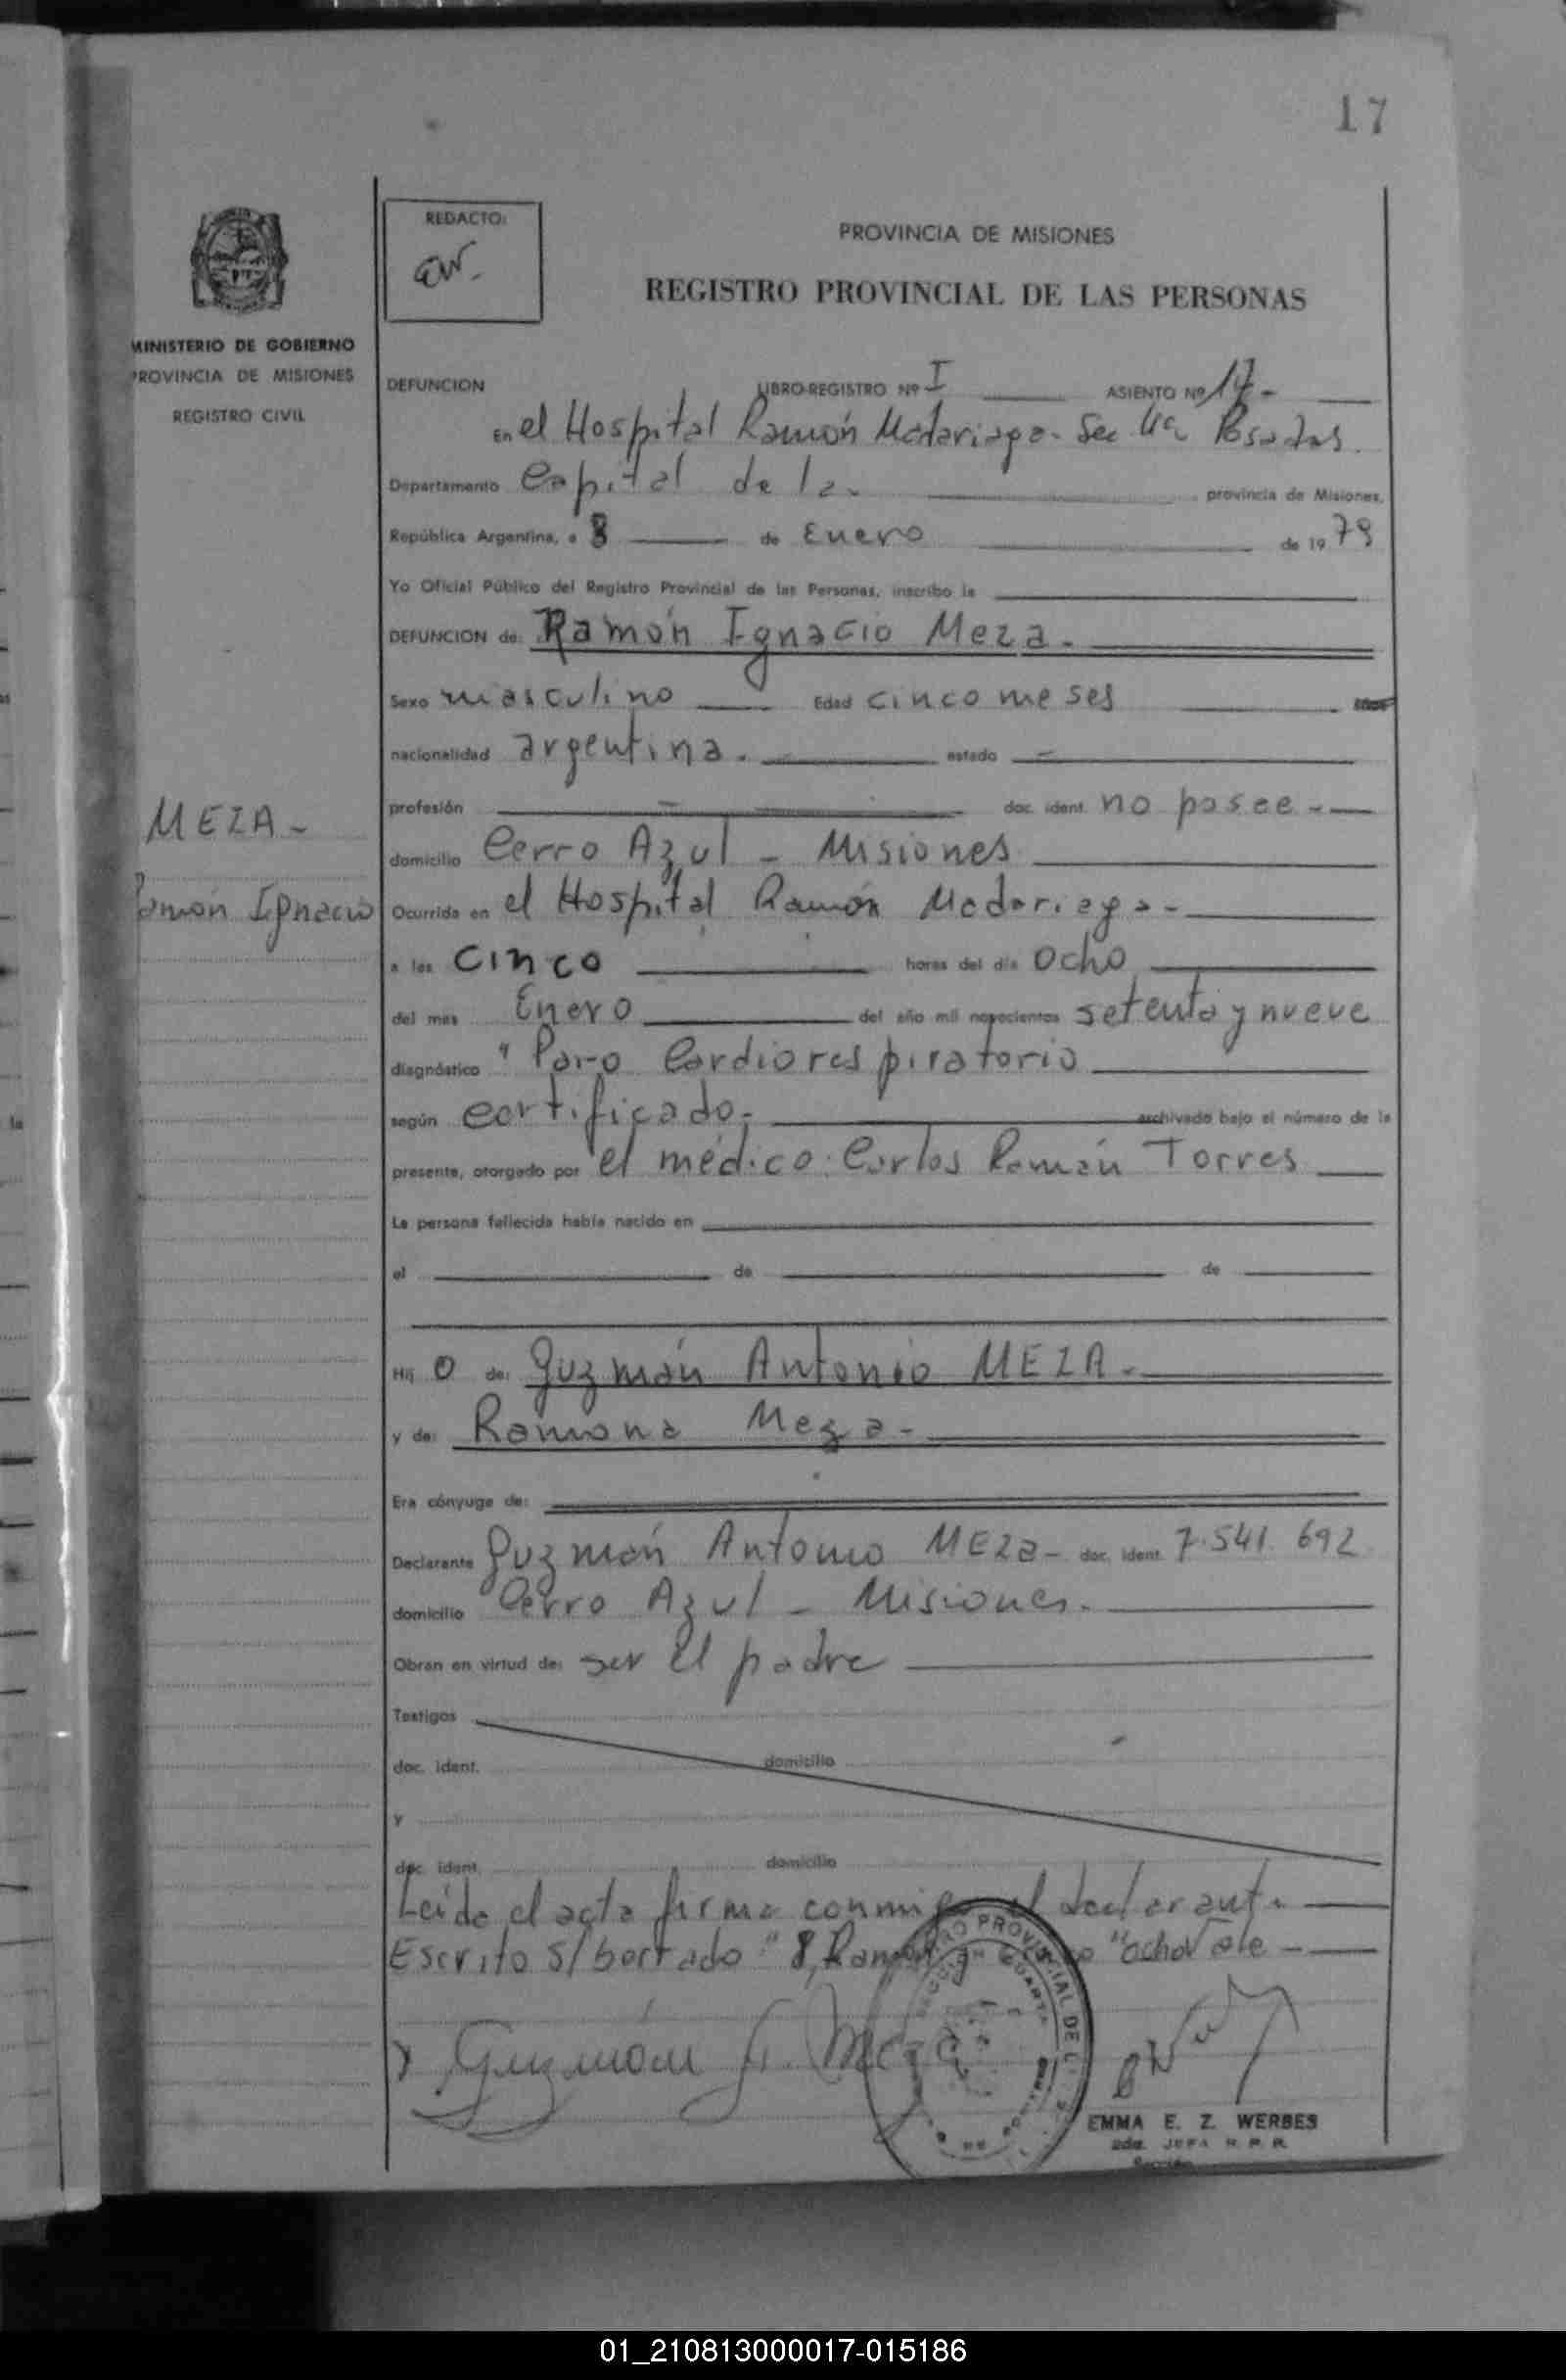 17
REDACTO:
PROVINCIA DE MISIONES
REGISTRO PROVINCIAL DE LAS PERSONAS
MINISTERIO DE GOBIERNO
PROVINCIA DE MISIONES
REGISTRO CIVIL
DEFUNCION LIBRO-REGISTRO Nº I ASIENTO Nº 17-
En el Hospital Ramón Madariaga- Sec 4ta Posadas.
Departamento Capital de la- provincia de Misiones,
República Argentina, a 8 de Enero de 1979
Yo Oficial Público del Registro Provincial de las Personas, inscribo la
DEFUNCION de: Ramón Ignacio Meza-
Sexo masculino Edad cinco meses años
nacionalidad argentina. estado -
profesión - doc. ident. no posee-
MEZA-
domicilio Cerro Azul - Misiones
Ramón Ignacio
Ocurrida en el Hospital Ramón Madariaga-
a las cinco horas del día ocho
del mes Enero del año mil novecientos setenta y nueve
diagnóstico "Paro Cardiorespiratorio
según certificado- archivado bajo el número de la
presente, otorgado por el médico: Carlos Ramón Torres
La persona fallecida había nacido en
el de de
Hij o de: Guzmán Antonio MEZA-
y de: Ramona Meza-
Era cónyuge de:
Declarante Guzmán Antonio MEZa- doc. ident. 7.541.692
domicilio Cerro Azul - Misiones.
Obran en virtud de: ser el padre
Testigos
doc. ident. domicilio
y
doc. ident. domicilio
Leida el acta firma conmigo el declarante
Escrito s/borrado "8, Ramón "ocho Vale-
Guzmán A. Meza
EMMA E. Z. WERBES
2da. JEFA R. P. P.
01_210813000017-015186